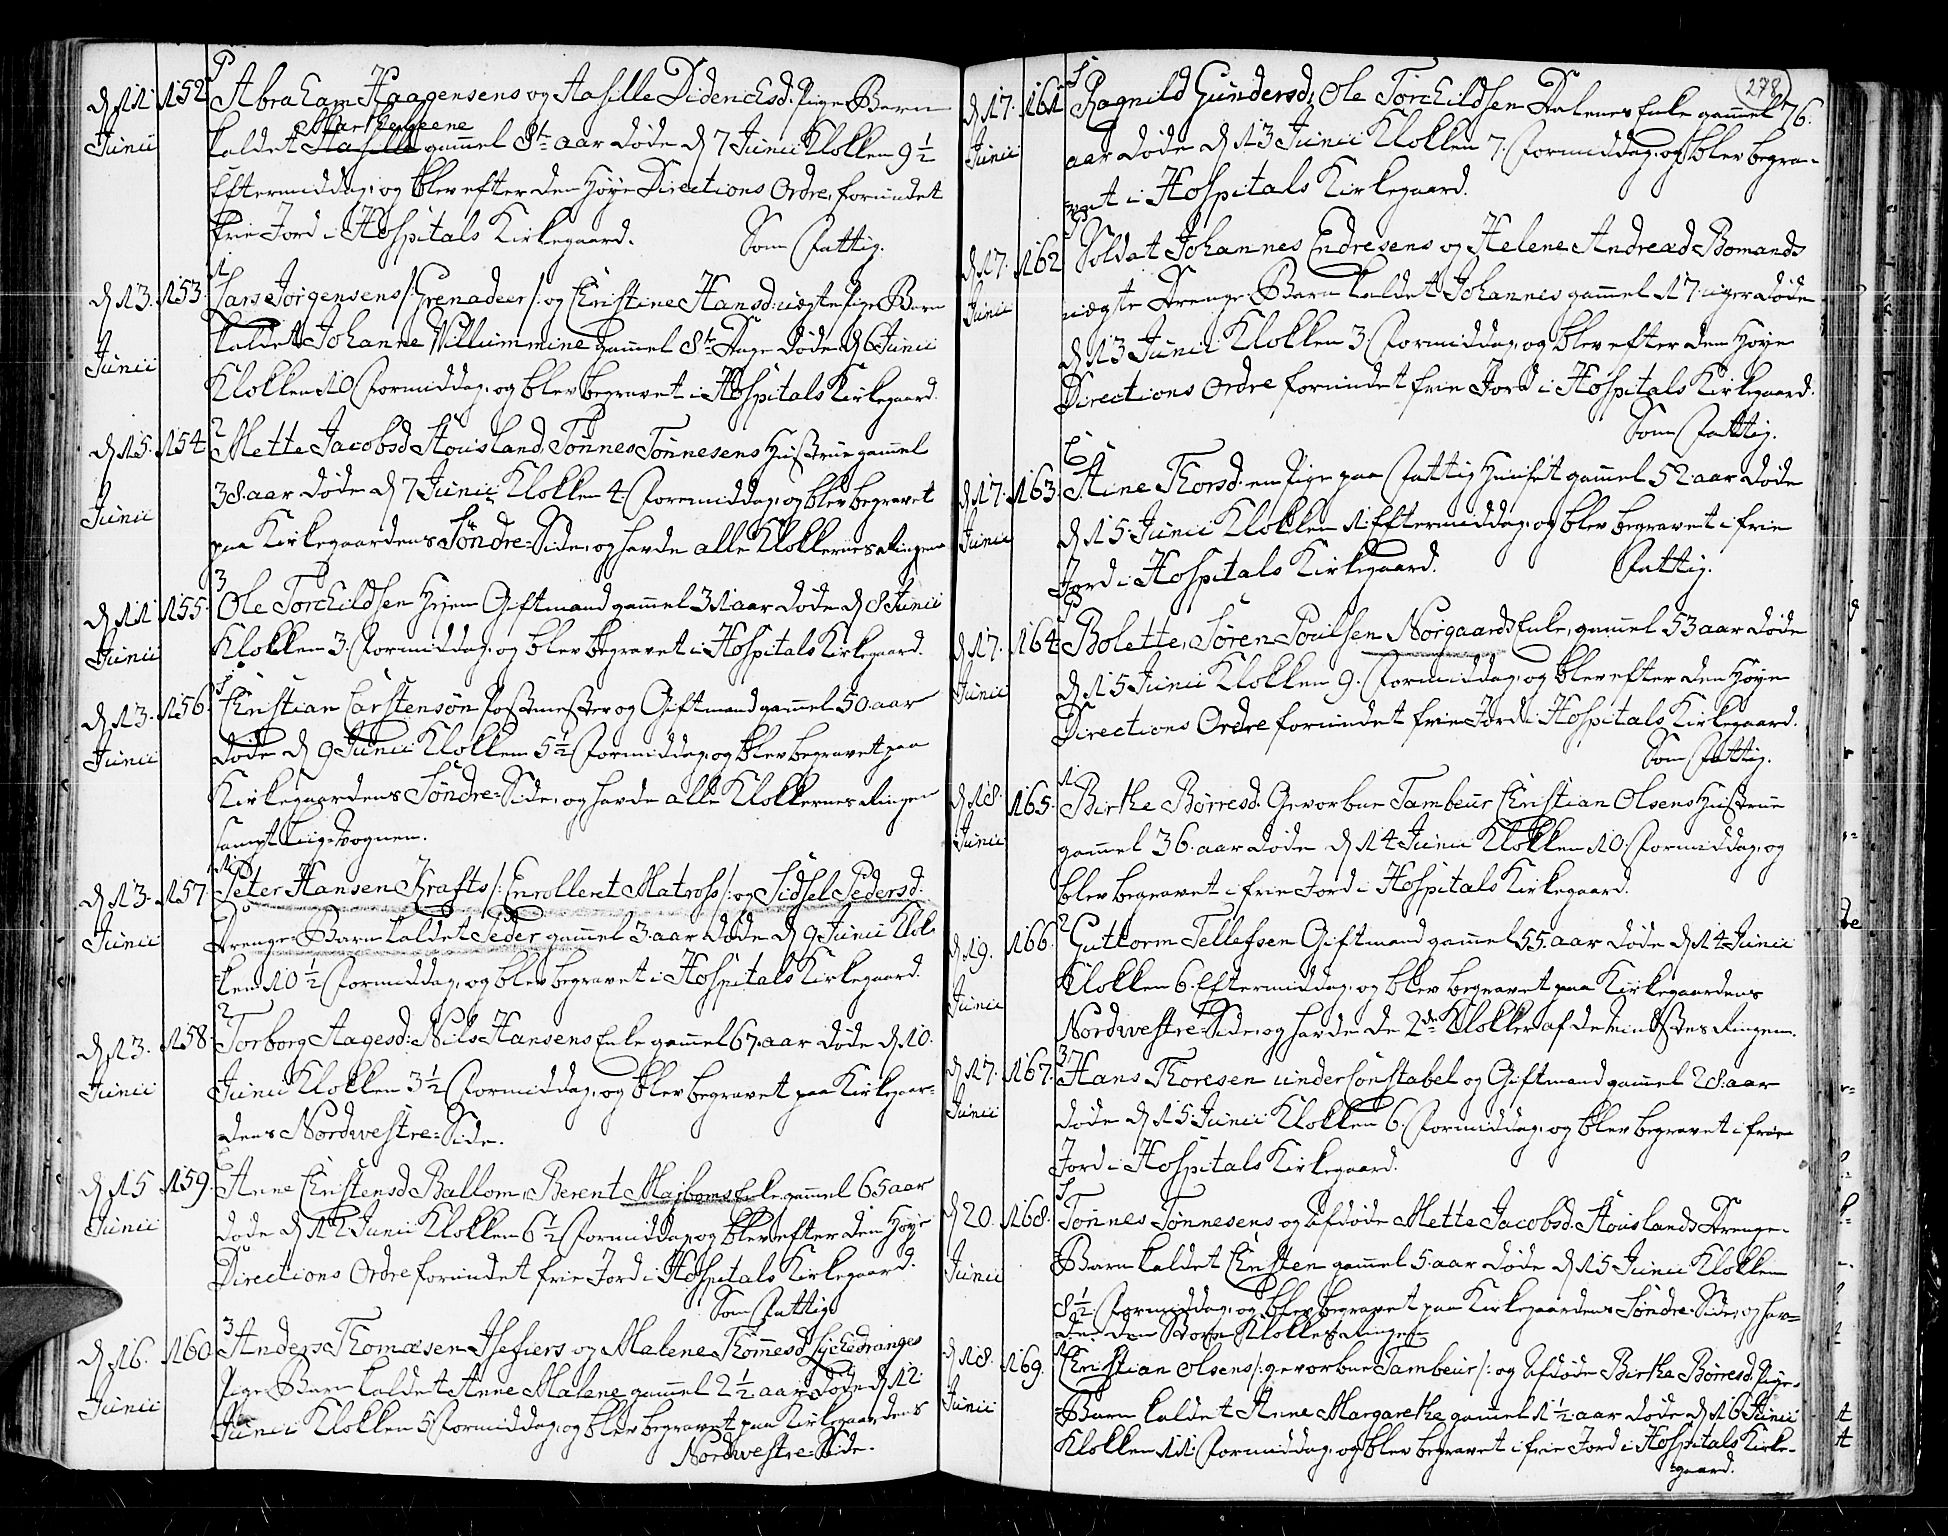 d 11. Junii 152. Abraham Haagensens og Aasille Didrichsd. Pige Barn
Marthegeene
kaldet Aasille gammel 8te aar døde d 7 Junii Klokken 9 1/2
Eftermiddag, og blev efter den Høye Directions Ordre, forundet
frie Jord i Hospitals Kirkegaard. Som Fattig.
d 13. Junii 153. Lars Jørgensens /: Grenadeer :/ og Christine Hansd: uægte Pige Barn
kaldet Johanne Villummine gammel 8te Dage døde d 6 Junii
Klokken 10 Formiddag, og blev begravet i Hospitals Kirkegaard.
d 15. Junii 154. Mette Jacobsd Stousland, Tønnes Tønnesens Hustrue gammel
38. aar døde d 7 Junii Klokken 4. Formiddag, og blev begravet
paa Kirkegaardens Søndre-Side, og havde alle Klokkernes Ringen
d 11 Junii 155. Ole Torchildsen Hejem Giftmand gammel 31 aar døde d 8 Junii
Klokken 3. Formiddag, og blev begravet i Hospitals Kirkegaard.
d 13. Junii 156. Christian Carstensøn Postmester og Giftmand gammel 50. aar
døde d 9 Junii Klokken 5 1/2 Formiddag, og blev begravet paa
Kirkegaardens Søndre-Side, og havde alle Klokkernes Ringen
sampt Liig-Vognen.
d 13. Junii 157. Peter Hansen Krafts /: Enrollent Matross :/ og Sidsel Pedersd:
Drenge-Barn kaldet Peder gammel 3. aar døde d 9 Junii Klok-
ken 10 1/2 Formiddag, og blev begravet i Hospitals Kirkegaard.
d 13. Junii 158. Torborg Aagesd: Nils Hansens Enke gammel 67. aar døde d 10.
Junii Klokken 3 1/2 Formiddag, og blev begravet paa Kirkegaar-
dens Nordwestre-Side.
d 15 Junii 159. Anne Christensd Ballom, Berent Majboms Enke gammel 65 aar
døde d 12 Junii Klokken 6 1/2 Formiddag, og blev efter den Høye
Directions Ordre forundet frie Jord i Hospitals Kirkegaard.
Som Fattig.
d 16. Junii 160. Anders Thomæsen Isefiers og Malene Tommesd Lychedranges
Pige-Barn kaldet Anne Malene gammel 2 1/2 aar døde d 12.
Junii Klokken 5 Formiddag, og blev begravet paa Kirkegaardens
Nordwestre-Side.
278
d 17. Junii 161. Ragnild Gundersd, Ole Torchildsen Dalenes Enke gammel 76.
aar døde d 13 Junii Klokken 7. Formiddag, og blev begra-
vet i Hospitals Kirkegaard.
d 17. Junii 162. Soldat Johannes Endresens og Helene Andreæd Bomands
uægte Drenge-Barn kaldet Johannes gammel 17. uger døde
d 13 Junii Klokken 3. Formiddag, og blev efter den Høye
Directions Ordre forundet frie Jord i Hospitals Kirkegaard.
Som Fattig.
d 17. Junii 163. Stine Thorsd. en Pige paa Fattig Huuset gammel 52. aar døde
d 15. Junii Klokken 1 Eftermiddag, og blev begravet i frie
Jord i Hospitals Kirkegaard. Fattig.
d 17. Junii 164. Bolette, Søren Poulsen Norgaards Enke, gammel 53 aar døde
d 15 Junii Klokken 9. Formiddag, og blev efter den Høye
Directions Ordre forundet frie Jord i Hospitals Kirkegaard.
Som Fattig.
d 18. Junii 165. Birthe Børresd. Gevorbne Tambour Christian Olsens Hustrue
gammel 36. aar døde d 14 Junii Klokken 10. Formiddag, og
blev begravet i frie Jord i Hospitals Kirkegaard.
d 19. Junii 166. Guttorm Tellefsen Giftmand gammel 55. aar døde d 14 Junii
Klokken 6. Eftermiddag, og blev begravet paa Kirkegaardens
Nordwestre-Side, og havde de 2de Klokker af de mindstes Ringen.
d 17. Junii 167. Hans Thoresen underConstabel og Giftmand gammel 28. aar
døde d 15 Junii Klokken 6. Formiddag, og blev begravet i frie
Jord i Hospitals Kirkegaard.
d 20. Junii 168. Tønnes Tønnesens og Afdøde Mette Jacobsd. Stouslands Drenge-
Barn kaldet Christen gammel 5. aar døde d 15 Junii Klokken
8 1/2 Formiddag, og blev begravet paa Kirkegaardens Søndre-Side, og hav-
de den Store Klokkes Ringen
d 18. Junii 169. Christian Olsens /: gevorbne Tambeur :/ og Afdøde Birthe Børresd. Pige-
Barn kaldet Anne Margarethe gammel 1 1/2 aar døde d 16 Junii
Klokken 11. Formiddag, og blev begravet i frie Jord i Hospitals Kirke-
gaard.